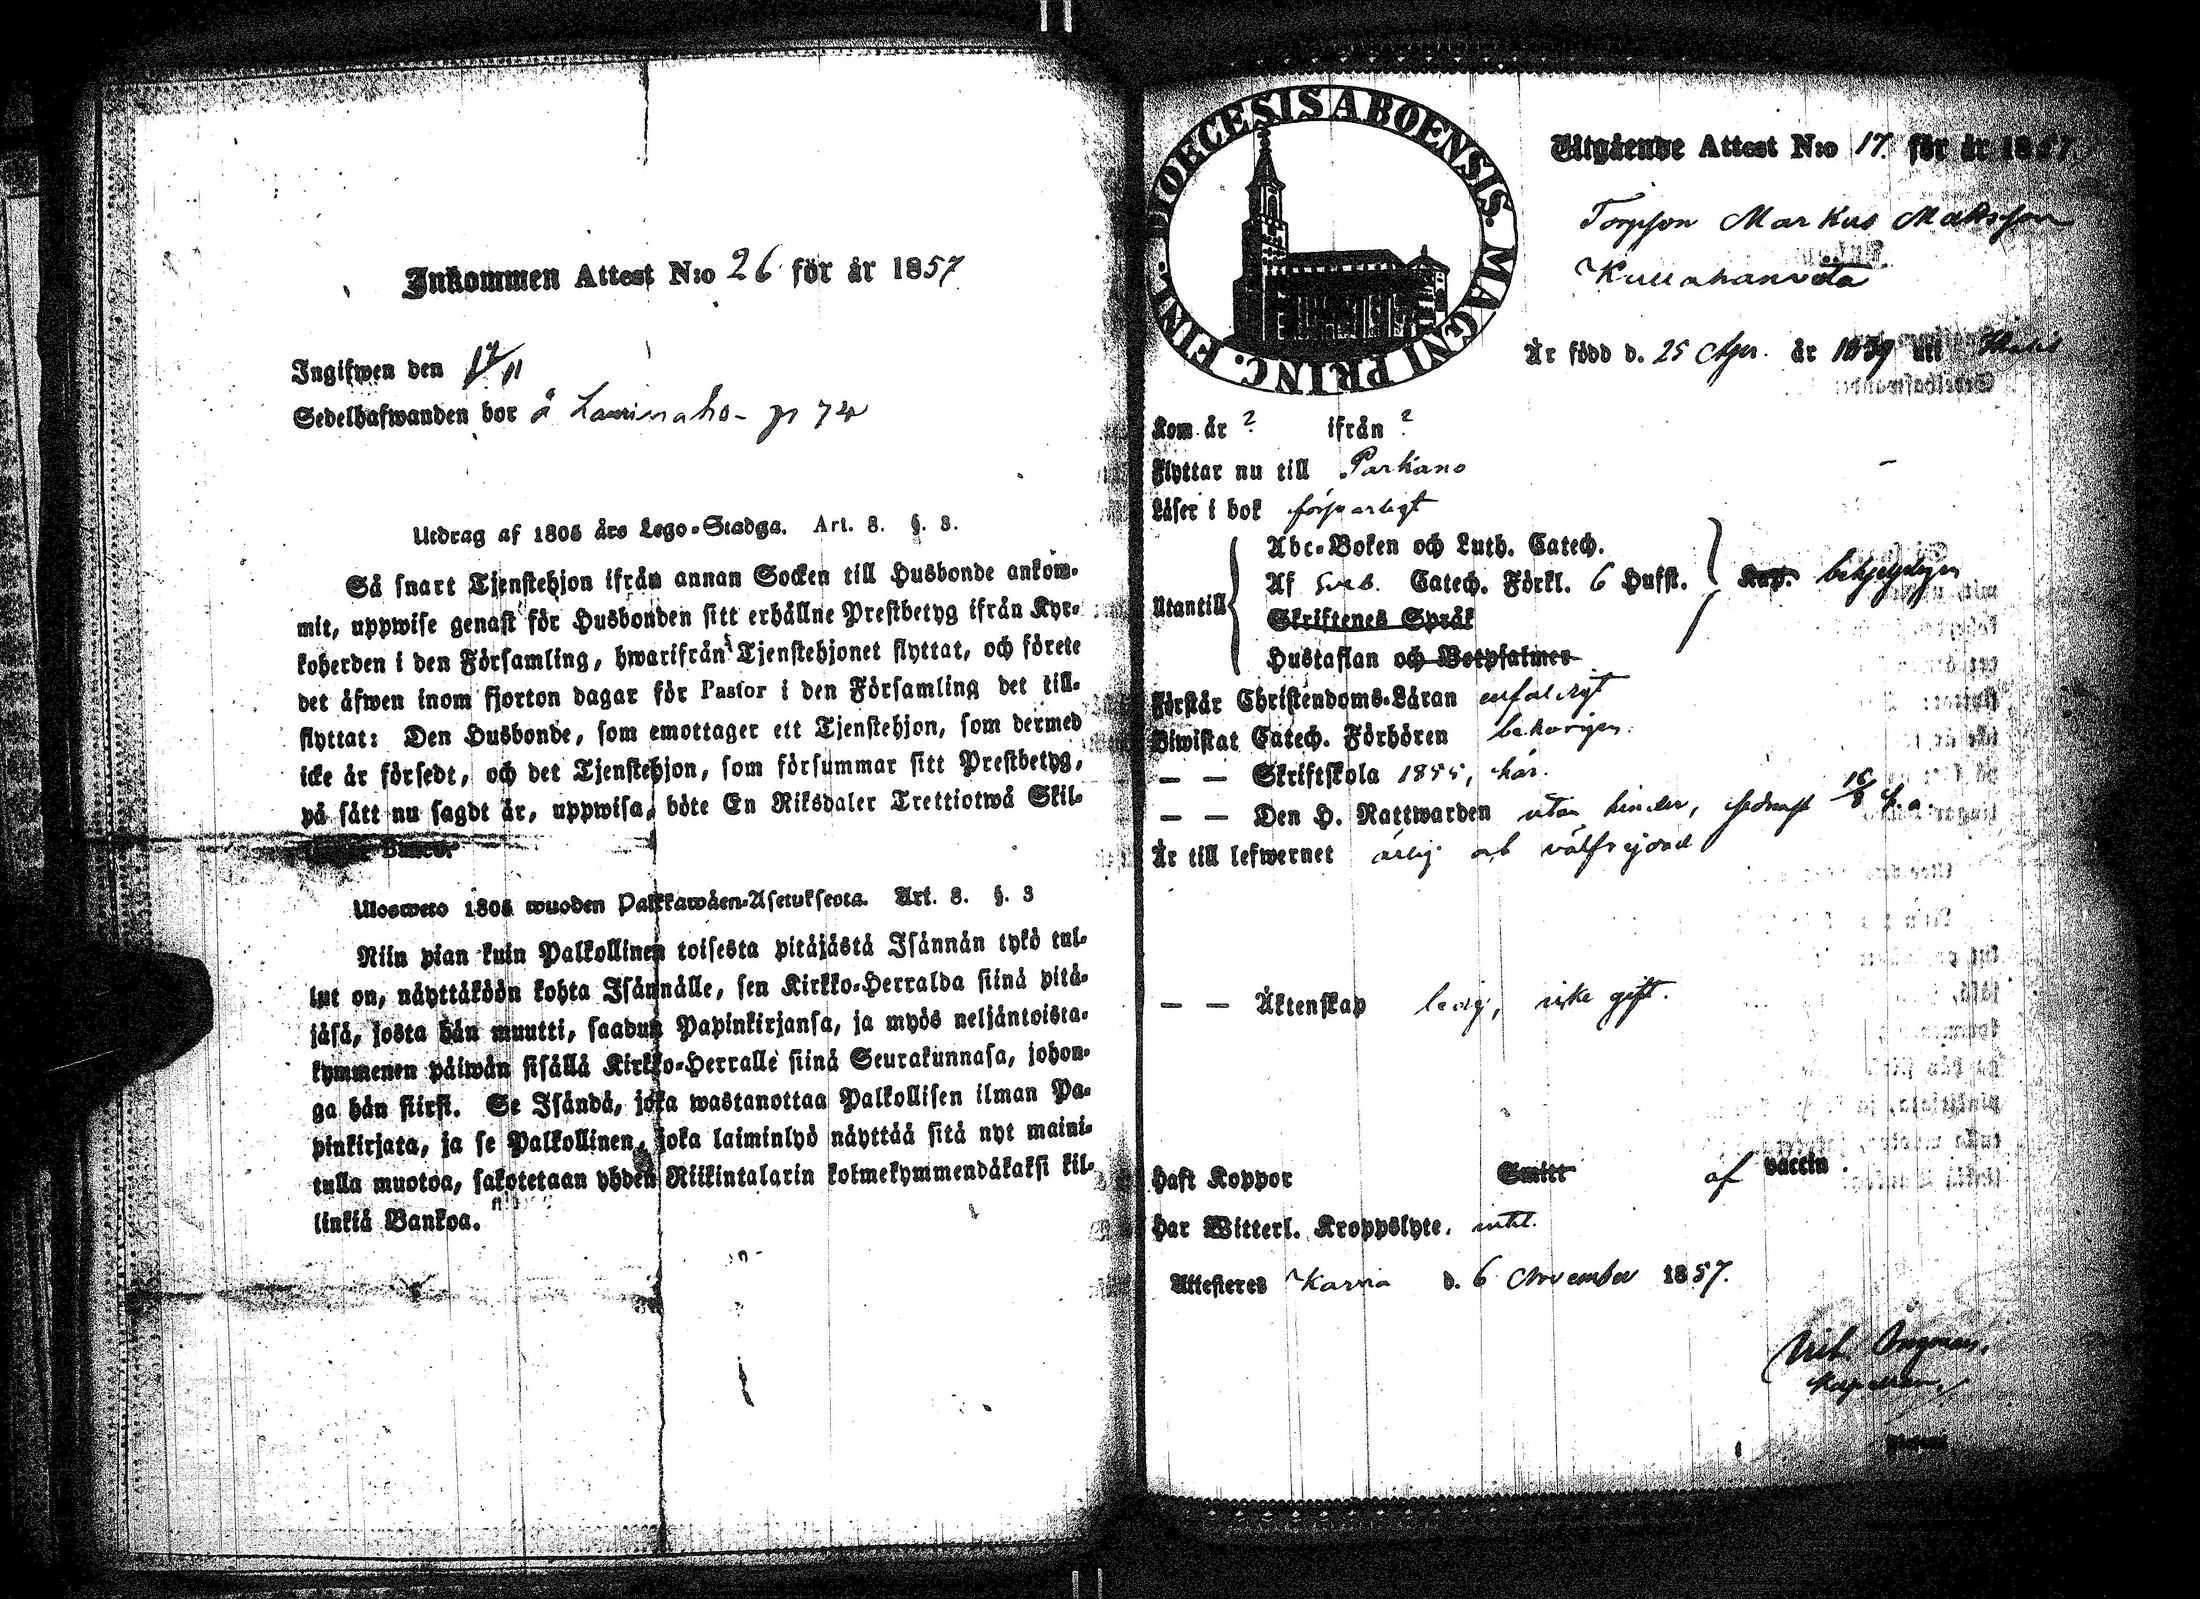 Inkommen Attest N:o 26 för år 1857
Ingifwen den 17/11
Sedelhafwanden bor å Laurinaho - p 74
Utdrag af 1805 års Lego-Stadga. Art. 8. §. 3.
Så snart Tjenstehjon ifrån annan Socken till Husbonde ankom-
mit, uppwise genast för Husbonden sitt erhållne Prestbetyg ifrån Kyr-
koherden i den Församling, hwarifrån Tjenstehjonet flyttat, och förete
det äfwen inom fjorton dagar för Pastor i den Församling det till-
flyttat: Den Husbonde, som emottager ett Tjenstehjon, som dermed
icke är försedt, och det Tjenstehjon, som försummar sitt Prestbetyg,
på sätt nu sagdt är, uppwisa, böte En Riksdaler Trettiotwå Skil-
Banco.
Uloswето 1805 wuoden Palkkawäen-Asetuksesta. Art. 8. §. 3
Niin pian kuin Palkollinen toisesta pitäjästä Isännän tykö tul-
lut on, näyttäköön kohta Isännälle, sen Kirkko-Herralda siinä pitä-
jäsä, josta hän muutti, saadun Papinkirjansa, ja myös neljäntoista-
kymmenen päiwän sisällä Kirkko-Herralle siinä Seurakunnasa, johon-
ga hän siirsi. Se Isändä, joka wastanottaa Palkollisen ilman Pa-
pinkirjata, ja se Palkollinen, joka laiminlyö näyttää sitä nyt maini-
tulla muotoa, sakotetaan yhden Riikintalarin kolmekymmendäkaksi kil-
linkiä Bankoa.
DIOECESIS ABOENSIS. MAGNI PRINC. FINL.
Utgående Attest N:o 17. för år 1857.
Torpson Markus Mattsson
Är född d. 25 Apr. år 1839 uti
Kom år ? ifrån ?
Flyttar nu till Parkano
Läser i bok försvarligt
Abc-Boken och Luth. Catech.
Af Sveb. Catech. Förkl. 6 Hufst. Kap.
Utantill
Skriftenes Språk
Hustaflan och Botpsalmer
Förstår Christendoms-Läran enfaldigt
Biwistat Catech. Förhören behörigen.
— — Skriftskola 1855, här.
— — Den H. Nattwarden utan hinder, sednast 16/8 d. a.
Är till lefwernet ärlig och välfrejdad
— — Äktenskap ledig, icke gift.
Haft Koppor Smitt af vaccin
Har Witterl. Kroppslyte. intet.
Attesteres Karvia d. 6 November 1857.
Kapellan.